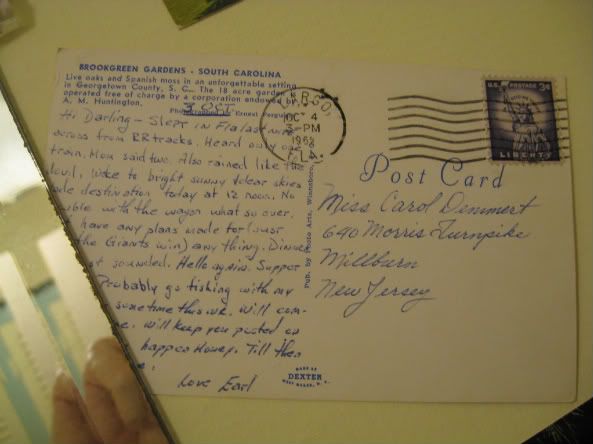 BROOKGREEN GARDENS - SOUTH CAROLINA
Live oaks and Spanish moss in an unforgettable setting
in Georgetown County, S. C. The 18 acre garden
operated free of charge by a corporation endowed by
A. M. Huntington.
Ernest Fergus
3 OCT.
Hi Darling - Slept in Fla last nite
across from RR tracks. Heard only one
train. Mom said two. Also rained like the
devil. Woke to bright sunny & clear skies
destination today at 12 noon. No
with the wagon what so ever.
have any plans made for (just
the Giants win) any thing. Dinner
sounded. Hello again. Supper
Probably go fishing with my
sometime this wk. Will com-
e. Will keep you posted on
happen Honey. Till then
Love Earl
OCT 4
PM
FLA.
U.S. POSTAGE 3¢
LIBERTY
Post Card
Miss Carol Demmert
640 Morris Turnpike
Millburn
New Jersey
Pub. by Photo Arts, Winnsboro,
MADE BY
DEXTER
WEST NYACK, N. Y.